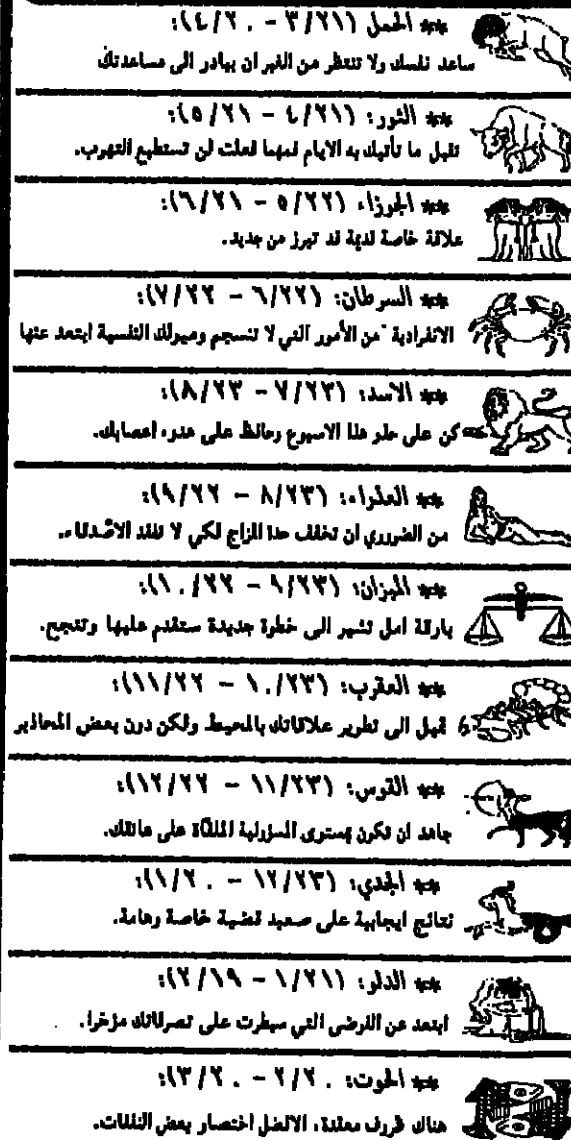 ** الحمل (٣/٢١ - ٤/٢٠):
ساعد نفسك ولا تنتظر من الغير ان يبادر الى مساعدتك
** الثور: (٤/٢١ - ٥/٢١):
تقبل ما تأتيك به الايام فمهما فعلت لن تستطيع التهرب.
** الجوزاء: (٥/٢٢ - ٦/٢١):
علاقة خاصة قديمة قد تبرز من جديد.
** السرطان: (٦/٢٢ - ٧/٢٢):
الانفرادية من الأمور التي لا تنسجم وميولك النفسية ابتعد عنها
** الاسد: (٧/٢٣ - ٨/٢٣):
كن على حذر هذا الاسبوع وحافظ على هدوء اعصابك.
** العذراء: (٨/٢٣ - ٩/٢٢):
من الضروري ان تخفف حدة المزاج لكي لا تفقد الاصدقاء.
** الميزان: (٩/٢٣ - ١٠/٢٢):
بارقة امل تشير الى خطوة جديدة ستقدم عليها وتنجح.
** العقرب: (١٠/٢٣ - ١١/٢٢):
تميل الى تطوير علاقاتك بالمحيط ولكن دون بعض المحاذير
** القوس: (١١/٢٣ - ١٢/٢٢):
جاهد ان تكون بمستوى المسؤولية الملقاة على عاتقك.
** الجدي: (١٢/٢٣ - ١/٢٠):
نتائج ايجابية على صعيد قضية خاصة وهامة.
** الدلو: (١/٢١ - ٢/١٩):
ابتعد عن الفوضى التي سيطرت على تصرفاتك مؤخرا.
** الحوت: ٢/٢٠ - ٣/٢٠):
هناك ظروف معقدة، الافضل اختصار بعض النفقات.